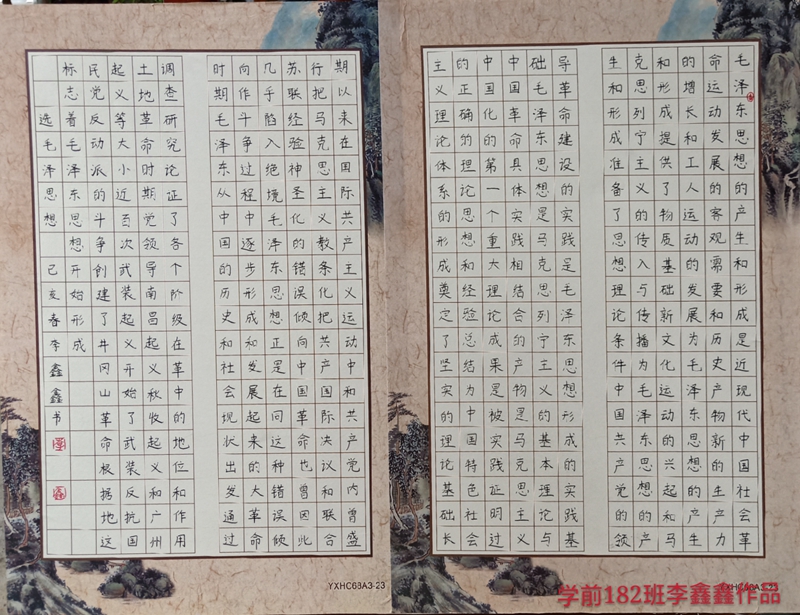 毛泽东思想的产生和形成是近现代中国社会革
命运动发展的客观需要和历史产物新的生产力
的增长和工人运动的发展为毛泽东思想的产生
和形成提供了物质基础新文化运动的兴起和马
克思列宁主义的传入与传播为毛泽东思想的产
生和形成准备了思想理论条件中国共产党的领
导革命建设的实践是毛泽东思想形成的实践基
础毛泽东思想是马克思列宁主义的基本理论与
中国革命具体实践相结合的产物是马克思主义
中国化的第一个重大理论成果是被实践证明过
的正确的理论思想和经验总结为中国特色社会
主义理论体系的形成奠定了坚实的理论基础长
期以来在国际共产主义运动中和共产党内曾盛
行把马克思主义教条化把共产国际决议和联合
苏联经验神圣化的错误倾向中国革命也曾因此
几乎陷入绝境毛泽东思想正是在同这种错误倾
向作斗争过程中逐步形成和发展起来的大革命
时期毛泽东从中国的历史和社会现状出发通过
调查研究论证了各个阶级在革中的地位和作用
土地革命时期党领导南昌起义秋收起义和广州
起义等大小近百次武装起义开始了武装反抗国
民党反动派的斗争创建了井冈山革命根据地这
标志着毛泽东思想开始形成
选毛泽思想 己亥春李鑫鑫书
YXHC68A3-23
学前182班李鑫鑫作品